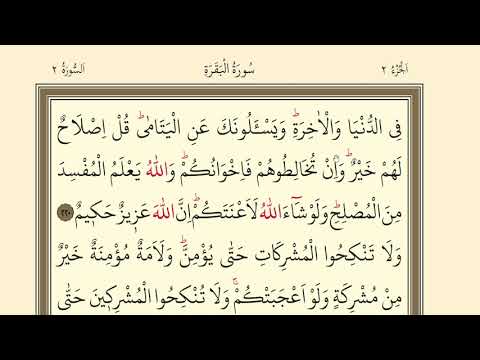 اَلْجُزْءُ ٢ سُورَةُ الْبَقَرَةِ اَلسُّورَةُ ٢
فِى الدُّنْيَا وَالْاٰخِرَةِۜ وَيَسْـَٔلُونَكَ عَنِ الْيَتَامٰىۜ قُلْ اِصْلَاحٌ
لَهُمْ خَيْرٌۜ وَاِنْ تُخَالِطُوهُمْ فَاِخْوَانُكُمْۜ وَاللّٰهُ يَعْلَمُ الْمُفْسِدَ
مِنَ الْمُصْلِحِۜ وَلَوْ شَٓاءَ اللّٰهُ لَاَعْنَتَكُمْۜ اِنَّ اللّٰهَ عَزِيزٌ حَكِيمٌ ٢٢٠
وَلَا تَنْكِحُوا الْمُشْرِكَاتِ حَتّٰى يُؤْمِنَّۜ وَلَاَمَةٌ مُؤْمِنَةٌ خَيْرٌ
مِنْ مُشْرِكَةٍ وَلَوْ اَعْجَبَتْكُمْۚ وَلَا تُنْكِحُوا الْمُشْرِكِينَ حَتّٰى